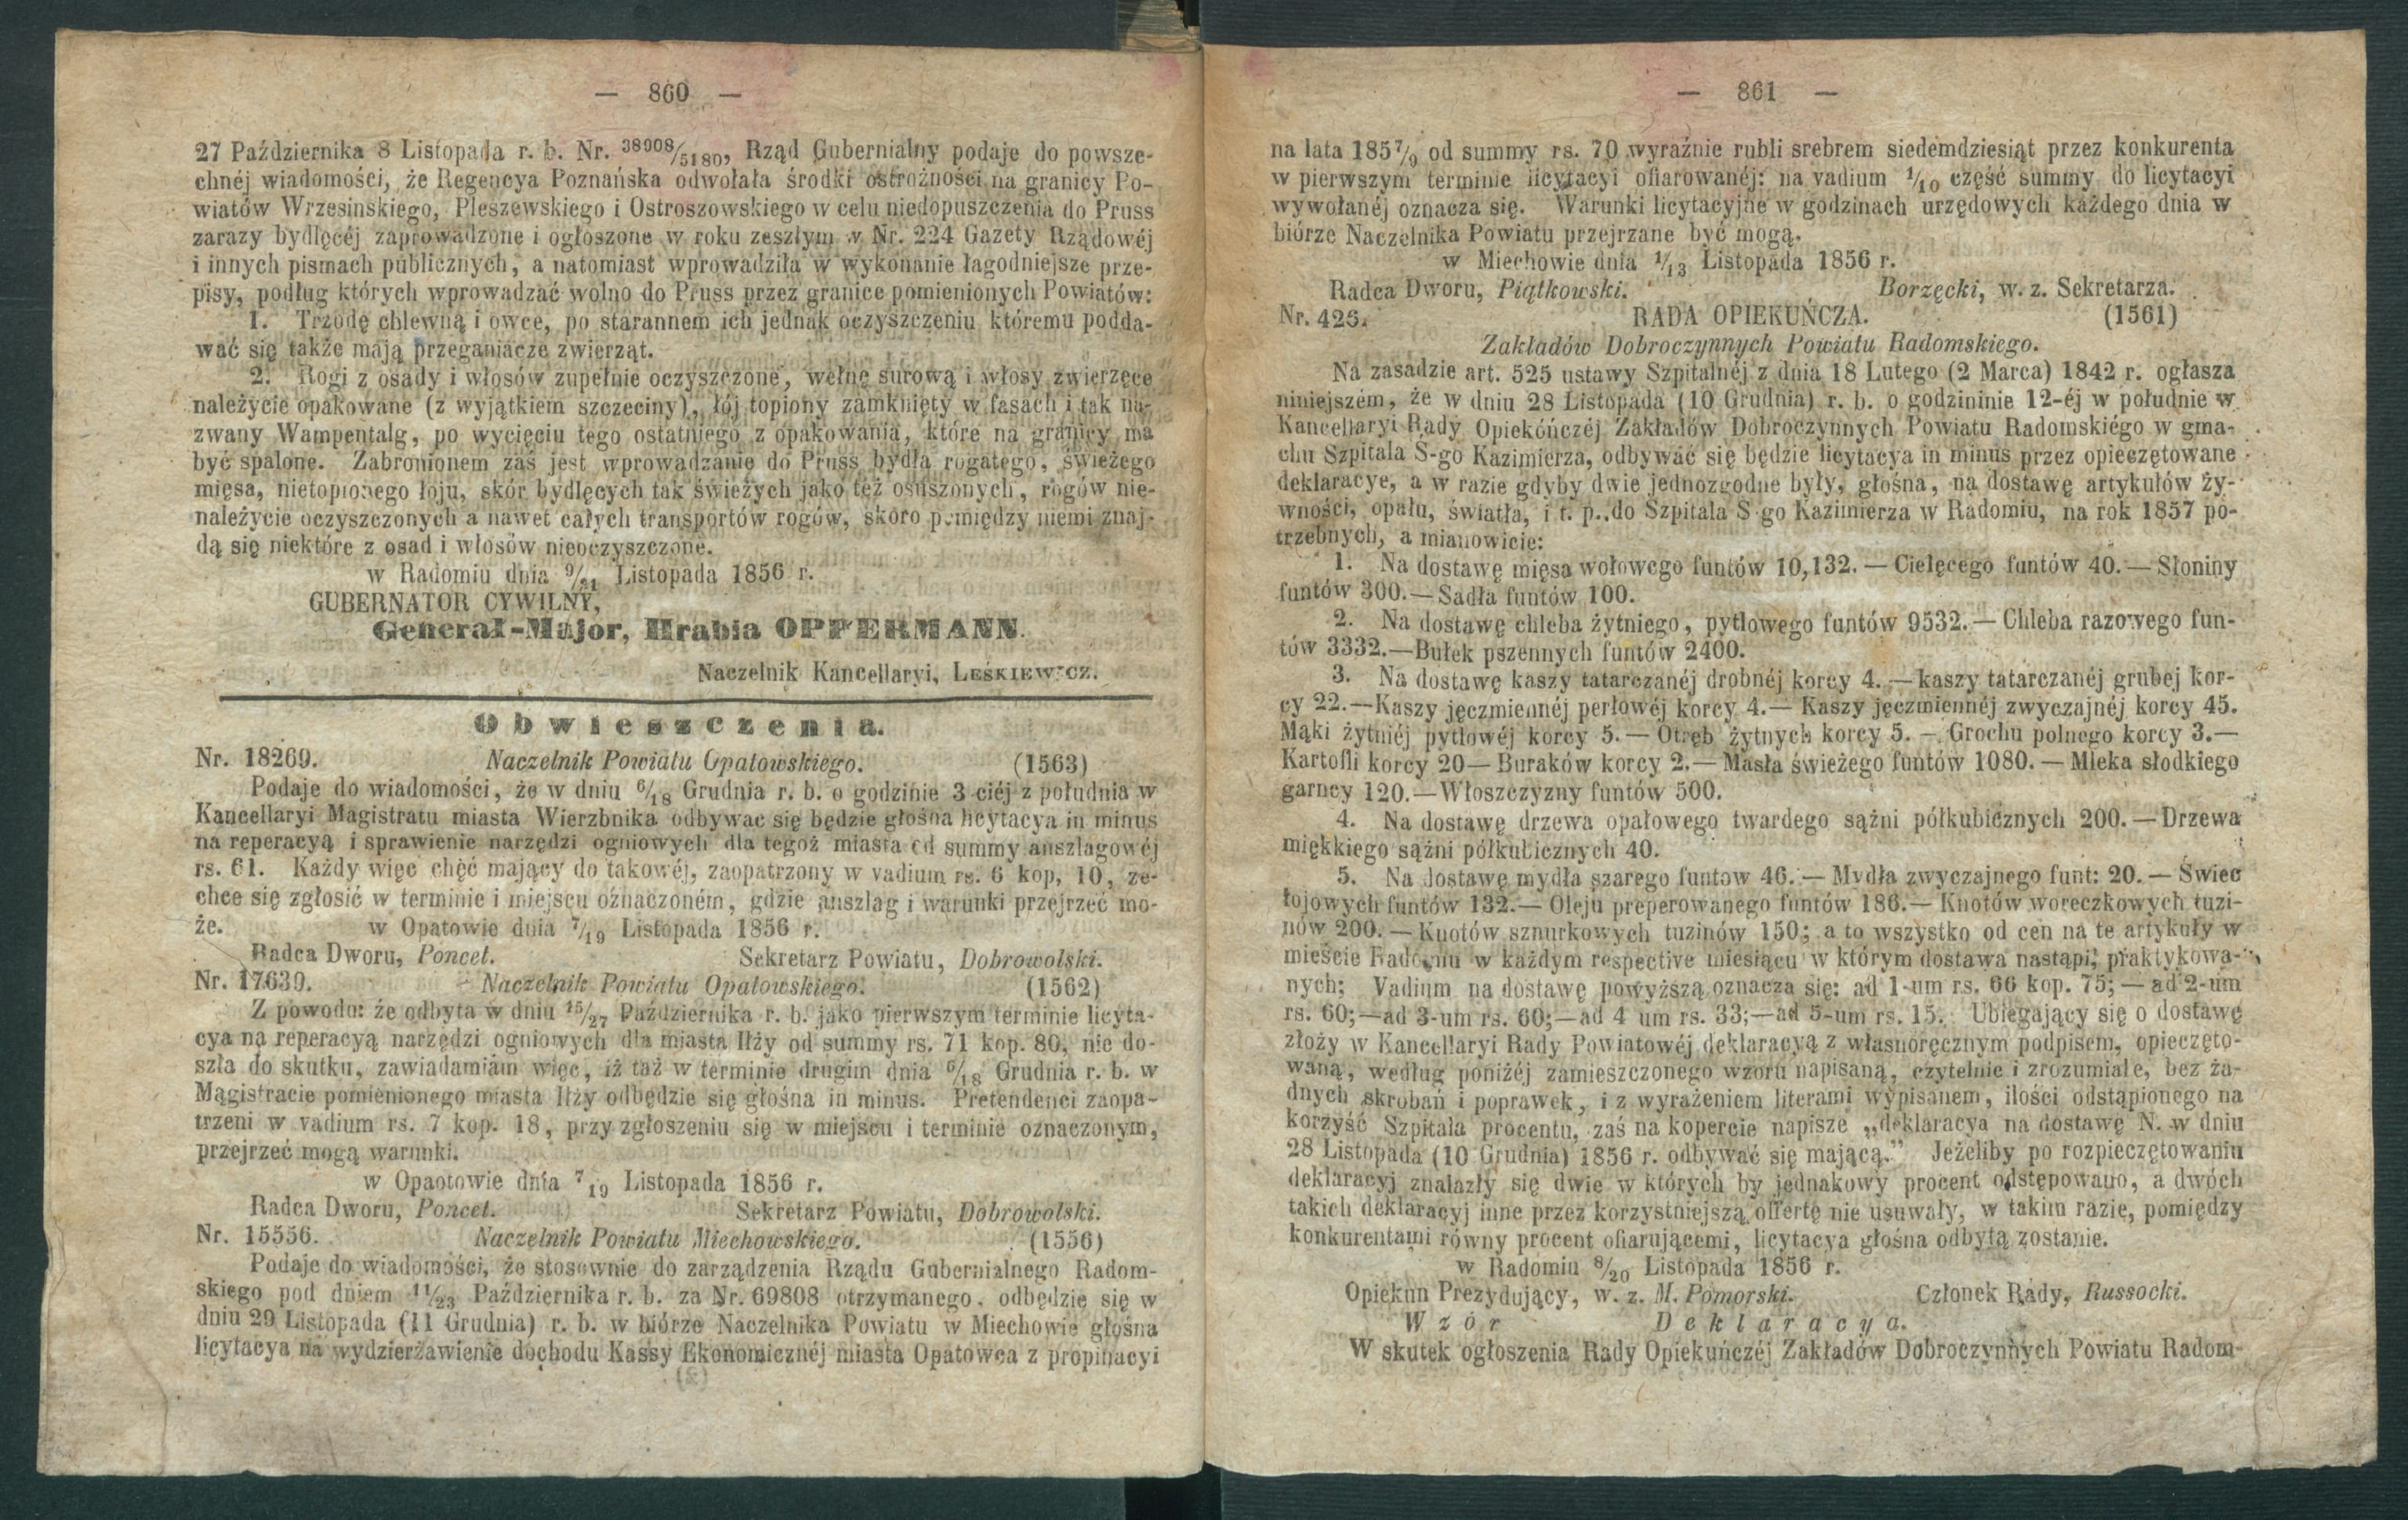 — 860 —
27 Października 8 Listopada r. b. Nr. 38908/5180, Rząd Gubernialny podaje do powsze-
chnéj wiadomości, że Regencya Poznańska odwołała środki ostrożności na granicy Po-
wiatów Wrzesinskiego, Pleszewskiego i Ostroszowskiego w celu niedopuszczenia do Pruss
zarazy bydlęcéj zaprowadzone i ogłoszone w roku zeszłym w Nr. 224 Gazety Rządowéj
i innych pismach publicznych, a natomiast wprowadziła w wykonanie łagodniejsze prze-
pisy, podług których wprowadzać wolno do Pruss przez granice pomienionych Powiatów:
1. Trzodę chlewną i owce, po starannem ich jednak oczyszczeniu któremu podda-
wać się także mają przeganiacze zwierząt.
2. Rogi z osady i włosów zupełnie oczyszczone, wełnę surową i włosy zwierzęce
należycie opakowane (z wyjątkiem szczeciny), łój topiony zamknięty w fasach i tak na-
zwany Wampentalg, po wycięciu tego ostatniego z opakowania, które na granicy ma
być spalone. Zabronionem zaś jest wprowadzanie do Pruss bydła rogatego, świeżego
mięsa, nietopionego łoju, skór bydlęcych tak świeżych jako też osuszonych, rogów nie-
należycie oczyszczonych a nawet całych transportów rogów, skoro pomiędzy niemi znaj-
dą się niektóre z osad i włosów nieoczyszczone.
w Radomiu dnia 9/21 Listopada 1856 r.
GUBERNATOR CYWILNY,
Generał-Major, Hrabia OPPERMANN.
Naczelnik Kancellaryi, LEŚKIEWICZ.
Obwieszczenia.
Nr. 18269. Naczelnik Powiatu Opatowskiego. (1563)
Podaje do wiadomości, że w dniu 6/18 Grudnia r. b. o godzinie 3 ciéj z południa w
Kancellaryi Magistratu miasta Wierzbnika odbywac się będzie głośna licytacya in minus
na reperacyą i sprawienie narzędzi ogniowych dla tegoż miasta od summy anszlagowéj
rs. 61. Każdy więc chęć mający do takowéj, zaopatrzony w vadium rs. 6 kop, 10, ze-
chce się zgłosić w terminie i miejscu oźnaczoném, gdzie anszlag i warunki przejrzeć mo-
że. w Opatowie dnia 7/19 Listopada 1856 r.
Radca Dworu, Poncet. Sekretarz Powiatu, Dobrowolski.
Nr. 17639. Naczelnik Powiatu Opatowskiego. (1562)
Z powodu: że odbyta w dniu 15/27 Października r. b. jako pierwszym terminie licyta-
cya na reperacyą narzędzi ogniowych dla miasta Iłży od summy rs. 71 kop. 80, nie do-
szła do skutku, zawiadamiam więc, iż taż w terminie drugim dnia 6/18 Grudnia r. b. w
Magistracie pomienionego miasta Iłży odbędzie się głośna in minus. Pretendenci zaopa-
trzeni w vadium rs. 7 kop. 18, przy zgłoszeniu się w miejscu i terminie oznaczonym,
przejrzeć mogą warunki.
w Opaotowie dnia 7 19 Listopada 1856 r.
Radca Dworu, Poncet. Sekretarz Powiatu, Dobrowolski.
Nr. 15556. Naczelnik Powiatu Miechowskiego. (1556)
Podaje do wiadomości, że stosownie do zarządzenia Rządu Gubernialnego Radom-
skiego pod dniem 11/23 Października r. b. za Nr. 69808 otrzymanego, odbędzie się w
dniu 29 Listopada (11 Grudnia) r. b. w biórze Naczelnika Powiatu w Miechowie głośna
licytacya na wydzierżawienie dochodu Kassy Ekonomicznéj miasta Opatowca z propinacyi
— 861 —
na lata 1857/9 od summy rs. 70 wyraźnie rubli srebrem siedemdziesiąt przez konkurenta
w pierwszym terminie licytacyi ofiarowanéj: na vadium 1/10 część summy do licytacyi
wywołanéj oznacza się. Warunki licytacyjne w godzinach urzędowych każdego dnia w
biórze Naczelnika Powiatu przejrzane być mogą.
w Miechowie dnia 1/13 Listopada 1856 r.
Radca Dworu, Piątkowski. Borzęcki, w. z. Sekretarza.
Nr. 426. RADA OPIEKUŃCZA. (1561)
Zakładów Dobroczynnych Powiatu Radomskiego.
Na zasadzie art. 525 ustawy Szpitalnéj z dnia 18 Lutego (2 Marca) 1842 r. ogłasza
niniejszém, że w dniu 28 Listopada (10 Grudnia) r. b. o godzininie 12-éj w południe w
Kancellaryi Rady Opiekóńczéj Zakładów Dobroczynnych Powiatu Radomskiégo w gma-
chu Szpitala S-go Kazimierza, odbywać się będzie licytacya in minus przez opieczętowane
deklaracye, a w razie gdyby dwie jednozgodne były, głośna, na dostawę artykułów ży-
wności, opału, światła, i t. p. do Szpitala S go Kazimierza w Radomiu, na rok 1857 po-
trzebnych, a mianowicie:
1. Na dostawę mięsa wołowego funtów 10,132. — Cielęcego funtów 40. — Słoniny
funtów 300. — Sadła funtów 100.
2. Na dostawę chleba żytniego, pytlowego funtów 9532. — Chleba razowego fun-
tów 3332. — Bułek pszennych funtów 2400.
3. Na dostawę kaszy tatarczanéj drobnéj korcy 4. — kaszy tatarczanéj grubej kor-
cy 22. — Kaszy jęczmiennéj perłowéj korcy 4. — Kaszy jęczmiennéj zwyczajnéj korcy 45.
Mąki żytniéj pytlowéj korcy 5. — Otręb żytnych korcy 5. — Grochu polnego korcy 3. —
Kartofli korcy 20 — Buraków korcy 2. — Masła świeżego funtów 1080. — Mleka słodkiego
garncy 120. — Włoszczyzny funtów 500.
4. Na dostawę drzewa opałowego twardego sążni półkubicznych 200. — Drzewa
miękkiego sążni półkubicznych 40.
5. Na dostawę mydła szarego funtow 46. — Mydła zwyczajnego funt: 20. — Świec
łojowych funtów 132. — Oleju preperowanego funtów 186. — Knotów woreczkowych tuzi-
nów 200. — Knotów sznurkowych tuzinów 150; a to wszystko od cen na te artykuły w
mieście Radomiu w każdym respective miesiącu w którym dostawa nastąpi, praktykowa-
nych; Vadium na dostawę powyższą oznacza się: ad 1-um rs. 66 kop. 75; — ad 2-um
rs. 60; — ad 3-um rs. 60; — ad 4 um rs. 33; — ad 5-um rs. 15. Ubiegający się o dostawę
złoży w Kancellaryi Rady Powiatowéj deklaracyą z własnoręcznym podpisem, opieczęto-
waną, według poniżéj zamieszczonego wzoru napisaną, czytelnie i zrozumiale, bez ża-
dnych skrobań i poprawek, i z wyrażeniem literami wypisanem, ilości odstąpionego na
korzyść Szpitala procentu, zaś na kopercie napisze „deklaracya na dostawę N. w dniu
28 Listopada (10 Grudnia) 1856 r. odbywać się mającą.” Jeżeliby po rozpieczętowaniu
deklaracyj znalazły się dwie w których by jednakowy procent odstępowano, a dwóch
takich deklaracyj inne przez korzystniejszą offertę nie usuwały, w takim razie, pomiędzy
konkurentami równy procent ofiarującemi, licytacya głośna odbytą zostanie.
w Radomiu 8/20 Listopada 1856 r.
Opiekun Prezydujący, w. z. M. Pomorski. Członek Rady, Russocki.
Wzór Deklaracya.
W skutek ogłoszenia Rady Opiekuńczéj Zakładów Dobroczynnych Powiatu Radom-